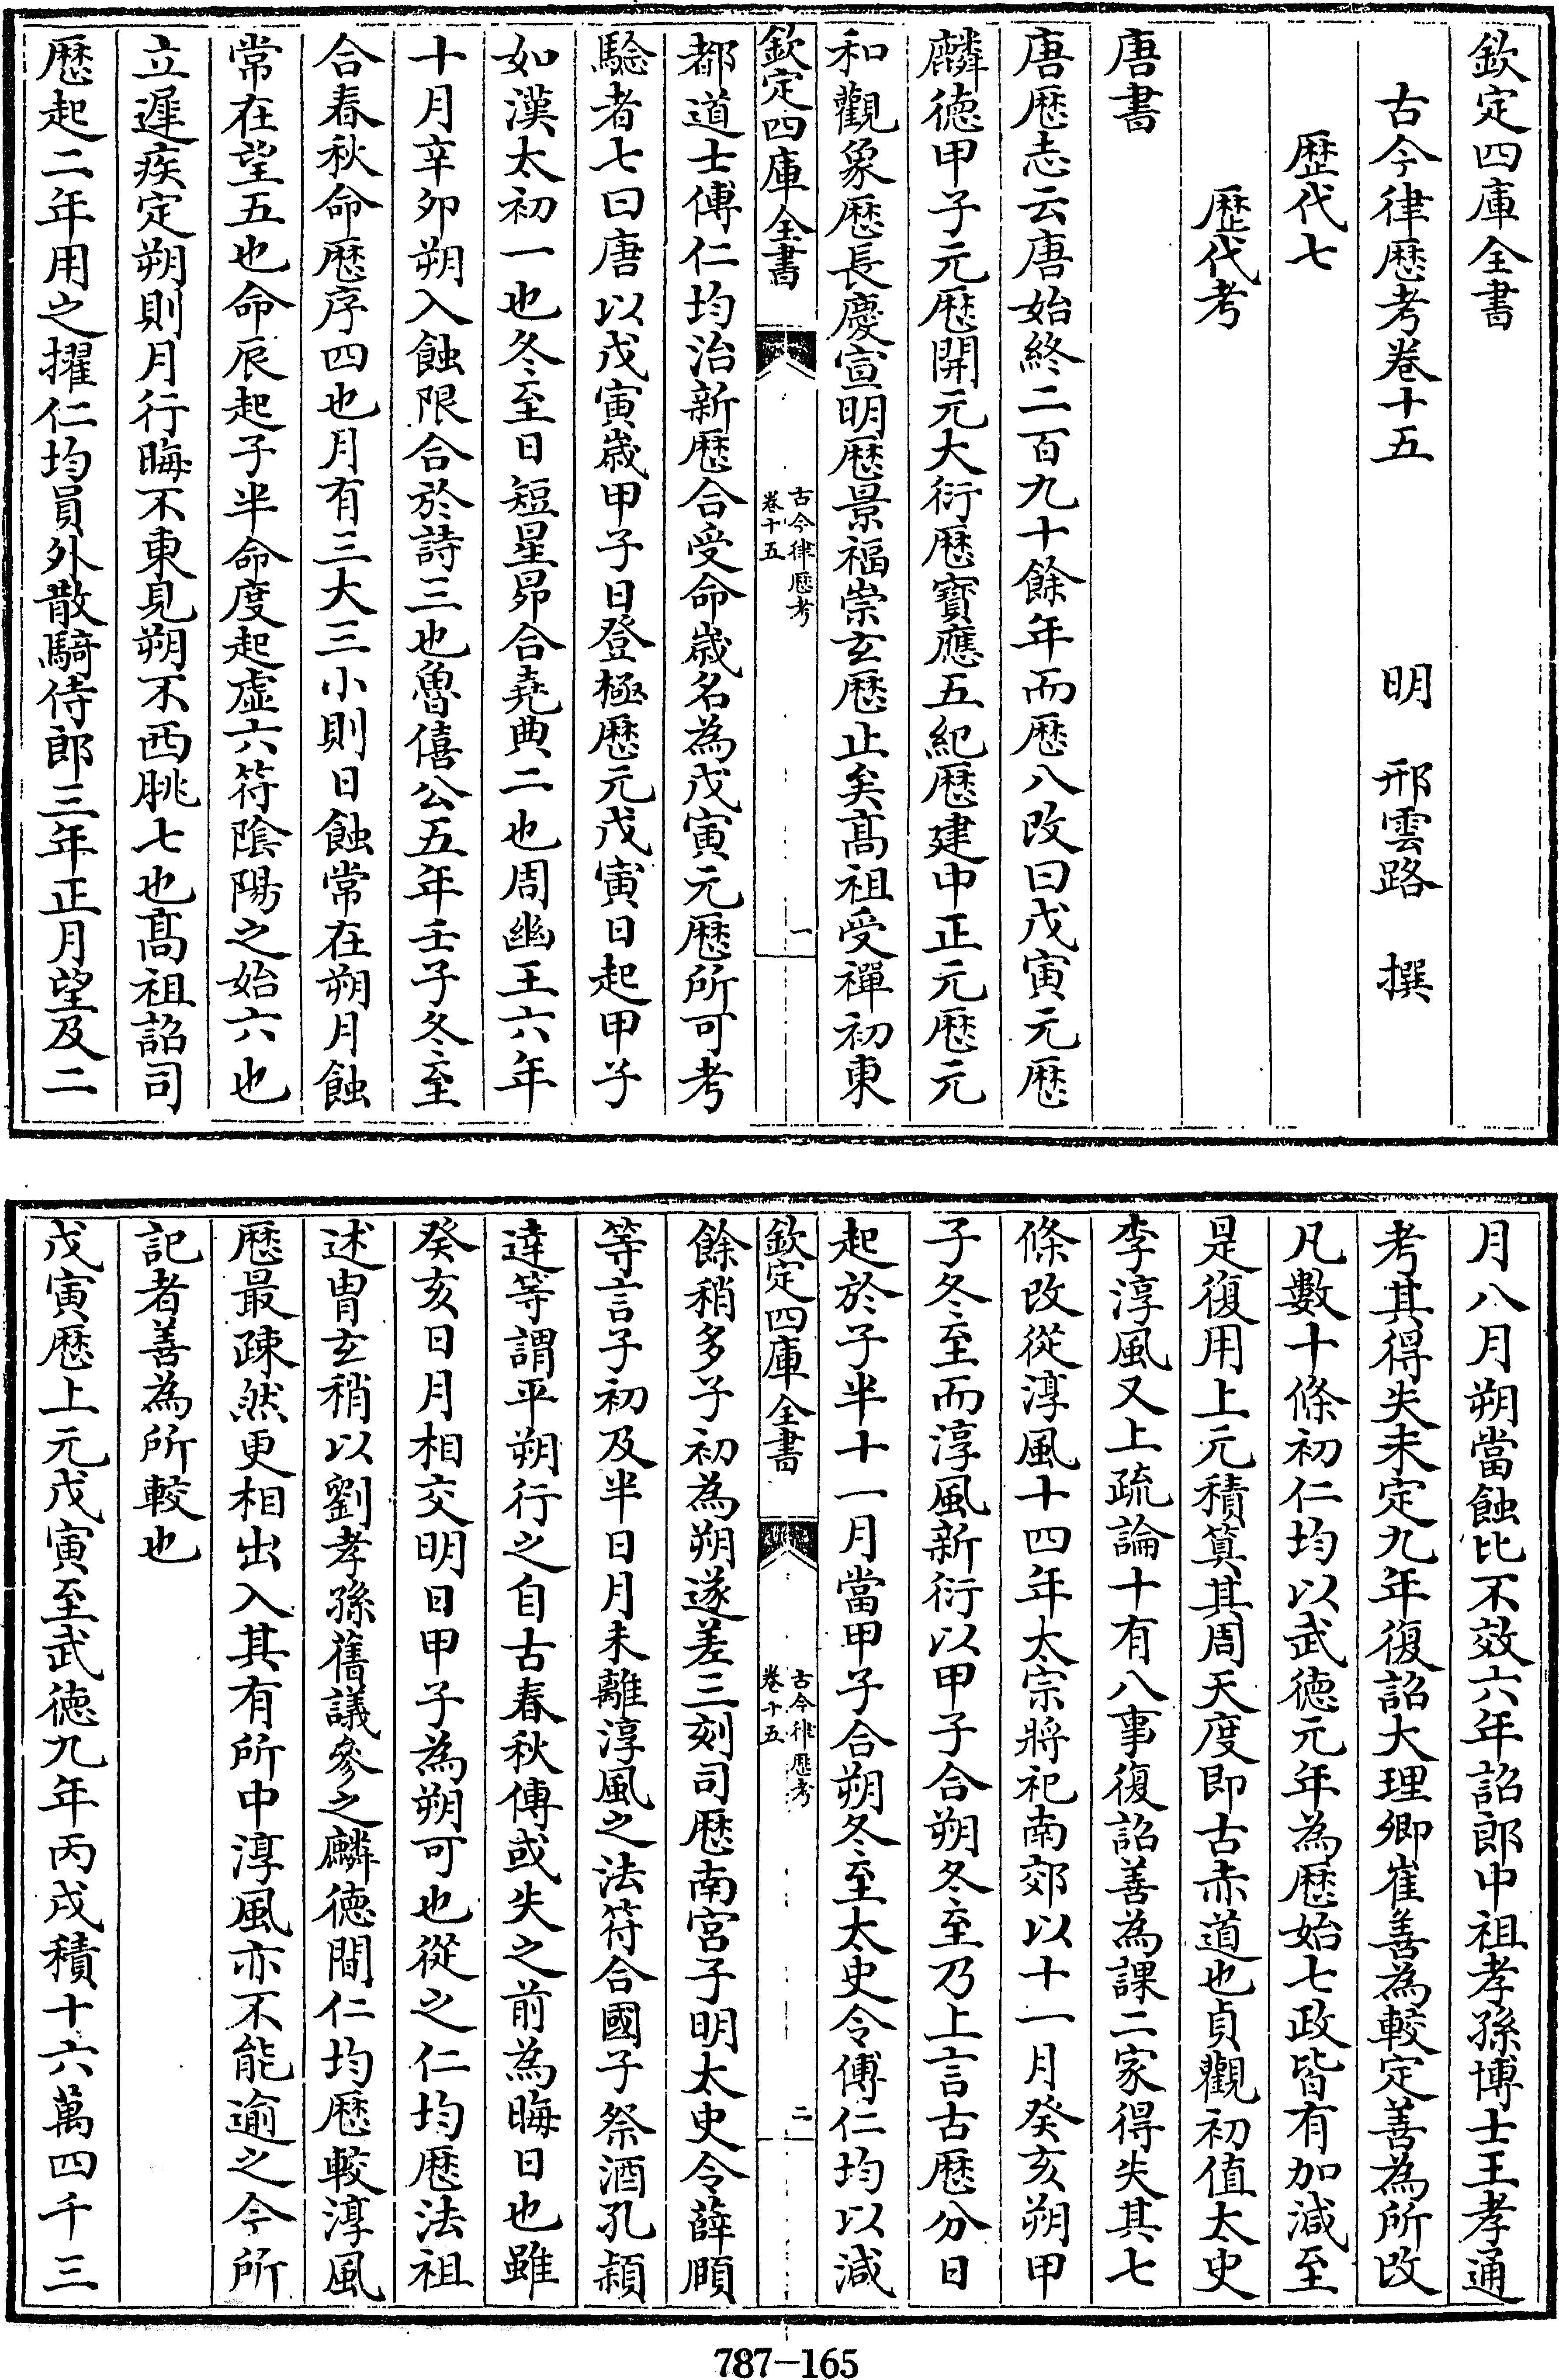 欽定四庫全書
古今律厯考卷十五　　　明　邢雲路　撰
歴代七
歴代考
唐書
唐厯志云唐始終二百九十餘年而厯八改曰戊寅元厯
麟徳甲子元厯開元大衍厯寳應五紀厯建中正元厯元
和觀象厯長慶宣明厯景福崇玄厯止矣髙祖受禪初東
欽定四庫全書
古今律厯考
卷十五
一
都道士傅仁均治新厯合受命嵗名為戊寅元厯所可考
騐者七曰唐以戊寅嵗甲子日登極厯元戊寅日起甲子
如漢太初一也冬至日短星昴合堯典二也周幽王六年
十月辛夘朔入蝕限合於詩三也魯僖公五年壬子冬至
合春秋命厯序四也月有三大三小則日蝕常在朔月蝕
常在望五也命辰起子半命度起虚六符陰陽之始六也
立遲疾定朔則月行晦不東見朔不西朓七也髙祖詔司
厯起二年用之擢仁均員外散騎侍郎三年正月望及二
月八月朔當蝕比不效六年詔郎中祖孝孫博士王孝通
考其得失未定九年復詔大理卿崔善為較定善為所改
凡數十條初仁均以武徳元年為厯始七政皆有加減至
是復用上元積筭其周天度即古赤道也貞觀初值太史
李淳風又上疏論十有八事復詔善為課二家得失其七
條改從淳風十四年太宗將祀南郊以十一月癸亥朔甲
子冬至而淳風新衍以甲子合朔冬至乃上言古厯分日
起於子半十一月當甲子合朔冬至太史令傅仁均以減
欽定四庫全書
古今律厯考
卷十五
二
餘稍多子初為朔遂差三刻司厯南宫子明太史令薛頥
等言子初及半日月未離淳風之法符合國子祭酒孔頴
逹等謂平朔行之自古春秋傳或失之前為晦日也雖
癸亥日月相交明日甲子為朔可也從之仁均厯法祖
述胄玄稍以劉孝孫舊議參之麟徳間仁均厯較淳風
厯最疎然更相出入其有所中淳風亦不能逾之今所
記者善為所較也
戊寅厯上元戊寅至武徳九年丙戌積十六萬四千三
787-165